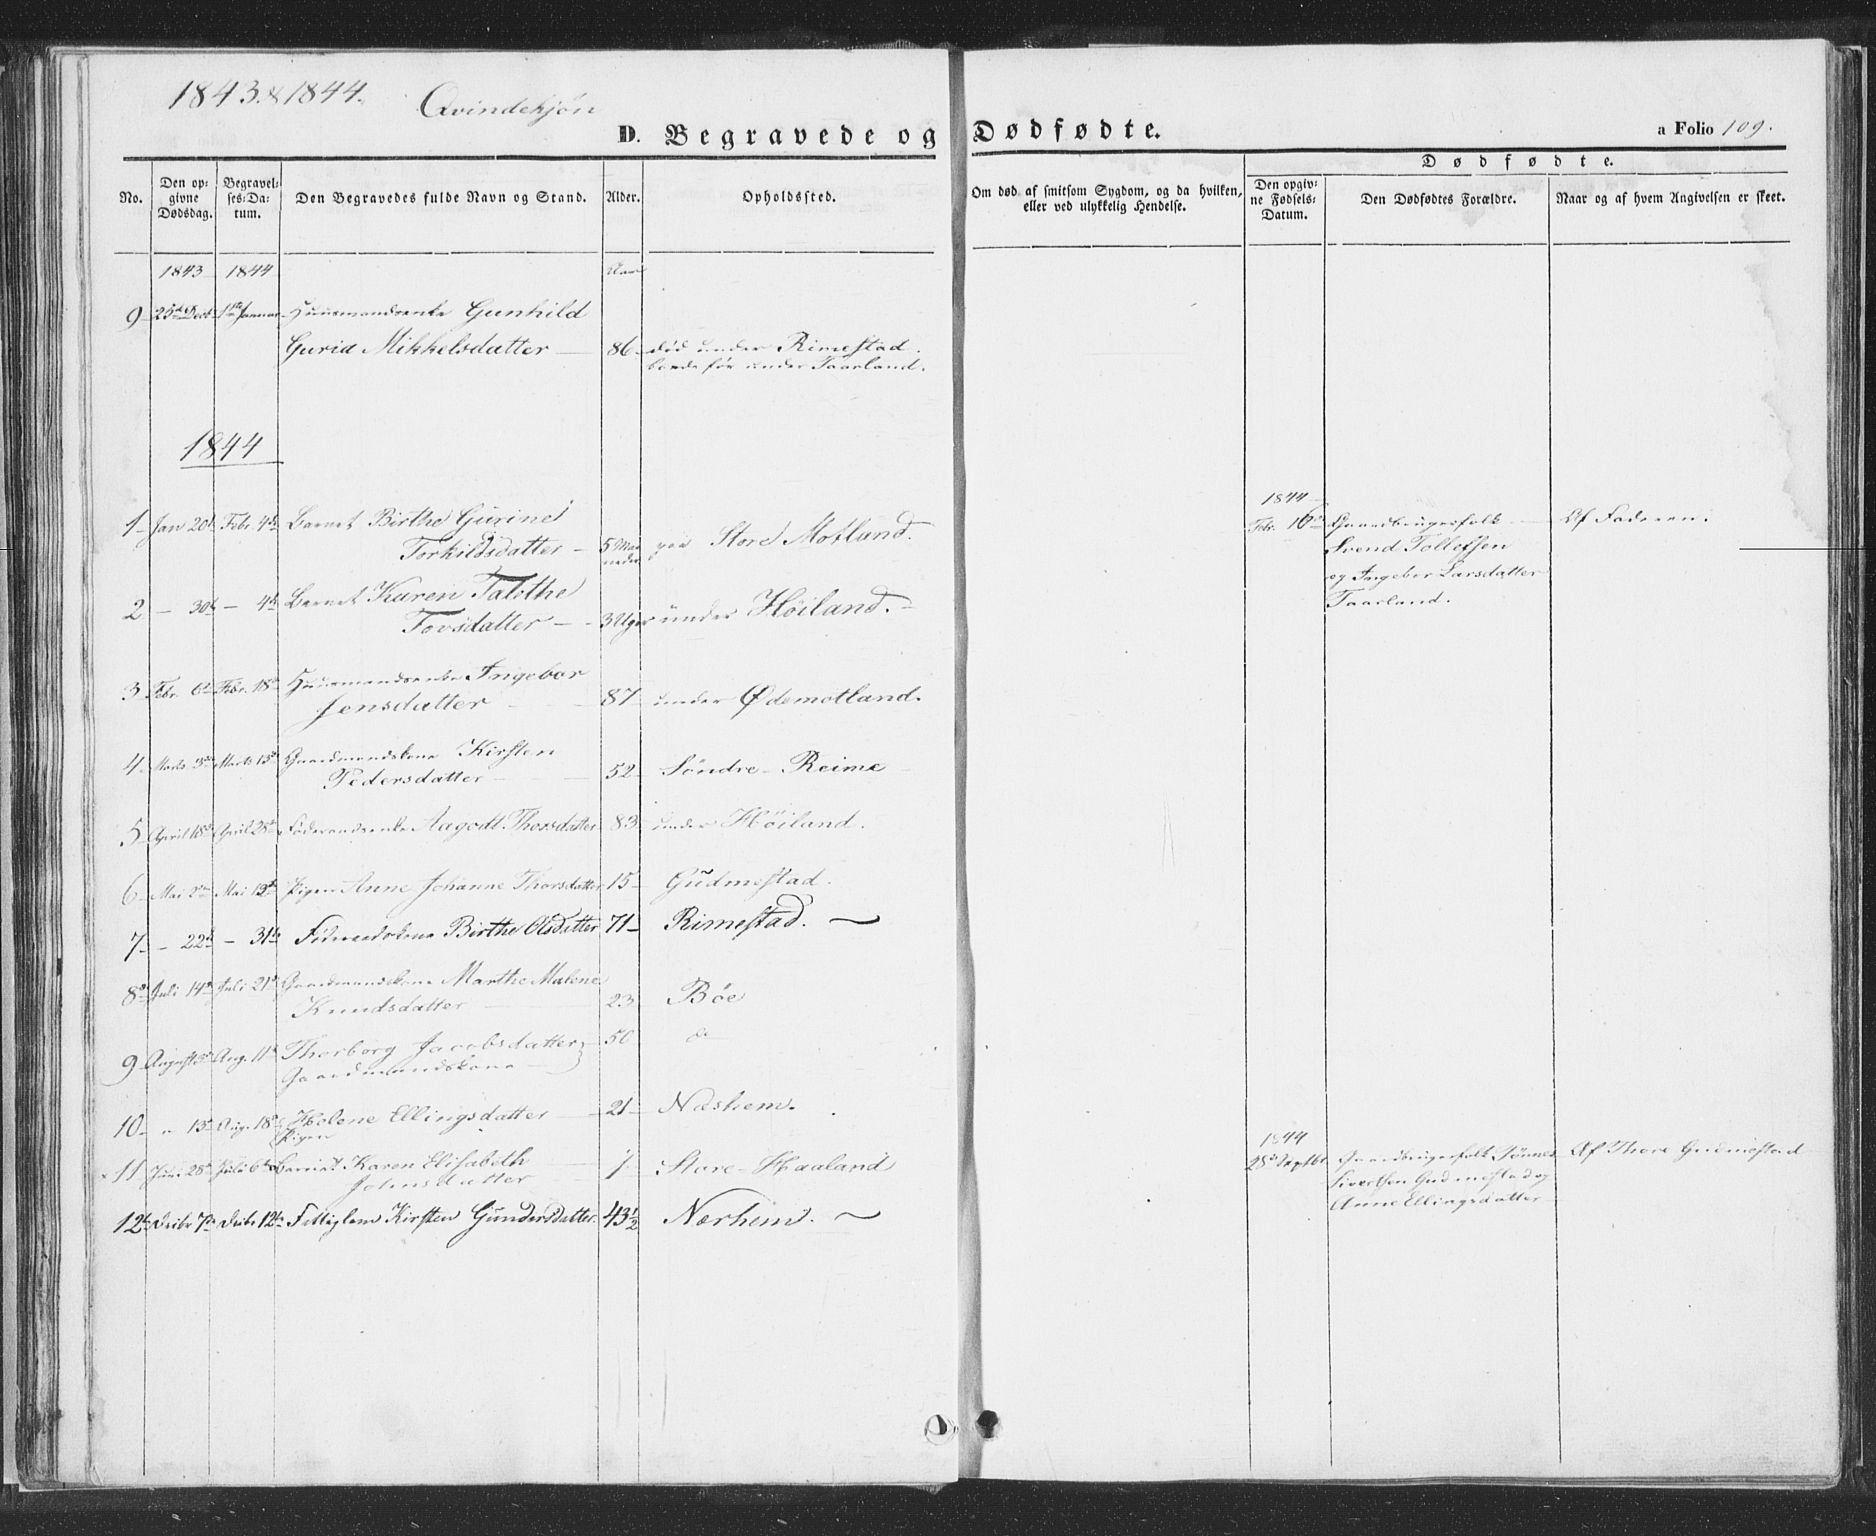 1843. & 1844. Qvindekjön
D. Begravede og Dødfødte.
a Folio 109.
No.
Den opgivne Dødsdag.
Begravelses-Datum.
Den Begravedes fulde Navn og Stand.
Alder.
Opholdssted.
Om død af smitsom Sygdom, og da hvilken,
eller ved ulykkelig Hendelse.
Dødfødte.
Den opgivne Fødsels-Datum.
Den Dødfødtes Forældre.
Naar og af hvem Angivelsen er skeet.
1843 1844 Aar
9 25de Decb 1ste Januar Huusmandsenke Gunhild
Gurid Mikkelsdatter 86 død under Rimestad.
boede før under Taarland.
1844
1 Jan 20 Febr. 4de Barnet Birthe Gurine
Torkildsdatter 5 Maaneder paa Store Motland.
2 - 30 - 4de Barnet Karen Talethe
Tovsdatter 3 Uger under Höiland.
3 Febr. 6te Febr. 18de Huusmandsenke Ingebor
Jonsdatter 87 under Ødemotland.
4 Marts 3die Marts 15de Gaardmandskone Kirsten
Pedersdatter 52 Söndre Reime
5 April 18de April 28de Föderaadsenke Aagodt Thorsdatter 83 under Höiland.
6 Mai 2den Mai 12te Pigen Anne Johanne Thorsdatter 15 Gudmestad.
7 - 22de - 31te Föderaadskone Birthe Olsdatter 71 Rimestad.
8 Juli 14de Juli 21de Gaardmandskone Marthe Malene
Knudsdatter 23 Böe
9 August 3die Aug. 11te Thorborg Jacobsdatter 50 do
Gaardmandskone
10 " 13de Aug. 18de Helene Ellingsdatter 21 Næshem.
Pigen
11 Juni 28de Juli 6te Barnet Karen Elisabeth 7 Store-Haaland
Johnsdatter
12te Decbr 7de Decbr 12te Fattiglem Kirsten Gundersdatter 43½ Nærhem.
1844
Febr. 16de Gaardbrugerfolk Af Faderen.
Svend Tollefsen
og Ingebor Larsdatter
Taarland.
1844
28de Septbr. Gaardbrugerfolk Tönnes Af Thore Gudmestad
Sivertsen Gudmestad og
Anne Ellingsdatter